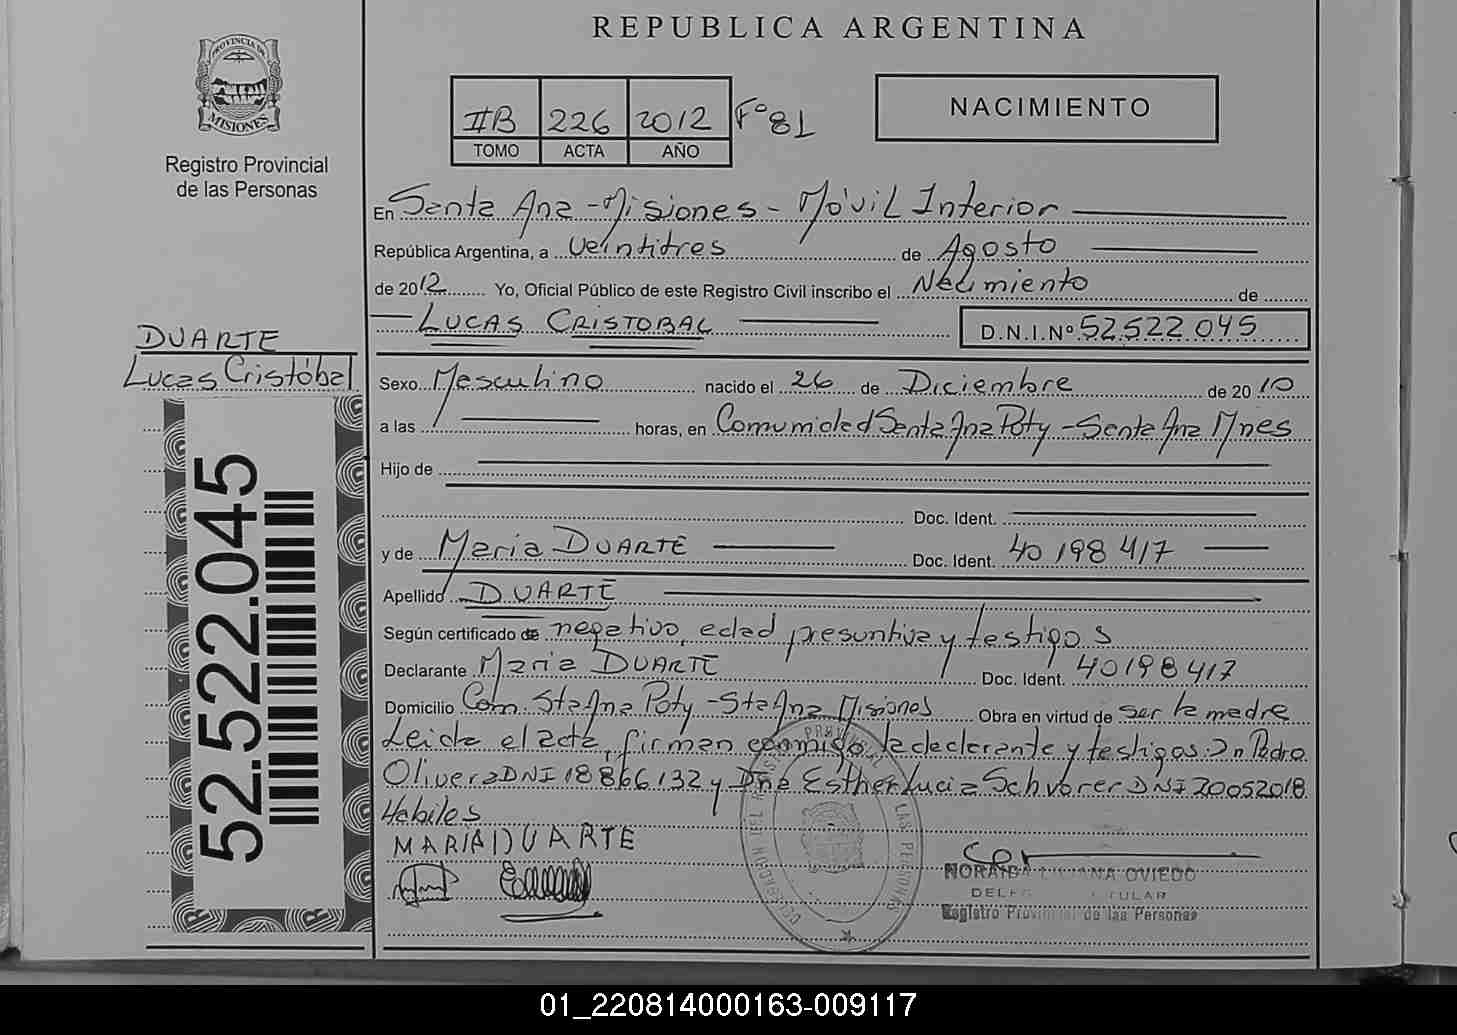 REPUBLICA ARGENTINA
PROVINCIA DE
MISIONES
Registro Provincial
de las Personas
IIB 226 2012 Fº 81
TOMO ACTA AÑO
NACIMIENTO
En Santa Ana - Misiones - Móvil Interior
República Argentina, a veintitres de Agosto
de 2012 Yo, Oficial Público de este Registro Civil inscribo el Nacimiento de
LUCAS CRISTOBAL D.N.I.Nº 52.522.045
DUARTE
Lucas Cristóbal
Sexo Masculino nacido el 26 de Diciembre de 2010
a las horas, en Comunidad Santa Ana Poty - Santa Ana Mnes
Hijo de
Doc. Ident.
y de Maria DUARTE Doc. Ident. 40 198 417
Apellido DUARTE
Según certificado de negativo, edad presuntiva y testigos
Declarante Maria DUARTE Doc. Ident. 40198417
Domicilio Com. Sta Ana Poty - Sta Ana Misiones Obra en virtud de ser la madre
Leida el acta, firman conmigo la declarante y testigos: Dn Pedro
Olivera DNI 18866132 y Dña Esther Lucia Schvorer DNI 20052018
Habiles
MARIA DUARTE
52.522.045
NORAIDA OVIEDO
TULAR
Registro Provincial de las Personas
LAS PERSONAS
01_220814000163-009117